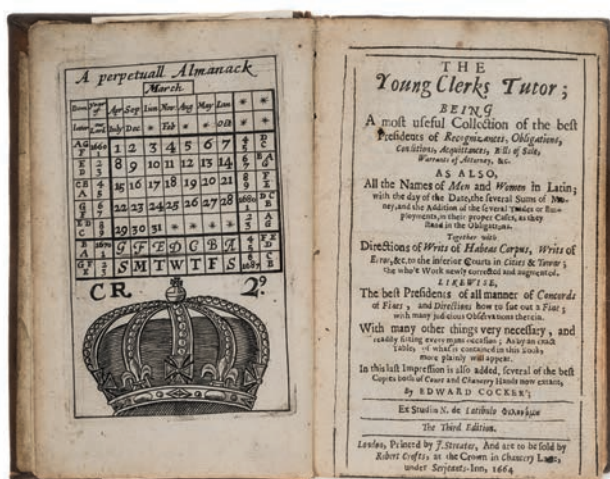 A perpetuall Almanack
March
Dom. Year of Apr Sep Iun Nov Aug May Ian * *
Letter our Lord July Dec * Feb * * Oct * *
1 2 3 4 5 6 7
8 9 10 11 12 13 14
15 16 17 18 19 20 21
22 23 24 25 26 27 28
29 30 31 * * * *
G F E D C B A
S M T W T F S
CR 2.⁹
THE
Young Clerks Tutor;
BEING
A most useful Collection of the best
Presidents of Recognizances, Obligations,
Conditions, Acquittances, Bills of Sale,
Warrants of Attorney, &c.
AS ALSO,
All the Names of Men and Women in Latin;
with the day of the Date, the several Sums of Mo-
ney, and the Addition of the several Trades or Em-
ployments, in their proper Cases, as they
stand in the Obligations.
Together with
Directions of Writs of Habeas Corpus, Writs of
Error, &c. to the inferior Courts in Cities & Towns;
the whole Work newly corrected and augmented.
LIKEWISE,
The best Presidents of all manner of Concords
of Fines, and Directions how to sue out a Fine;
with many judicious Observations therein.
With many other things very necessary, and
readily fitting every mans occasion; As by an exact
Table, of what is contained in this Book,
more plainly will appear.
In this last Impression is also added, several of the best
Copies both of Court and Chancery Hands now extant,
By EDWARD COCKER;
Ex Studio N. de Latibulo
The Third Edition.
London, Printed by J. Streater, And are to be sold by
Robert Crofts, at the Crown in Chancery Lane,
under Serjeants-Inn, 1664